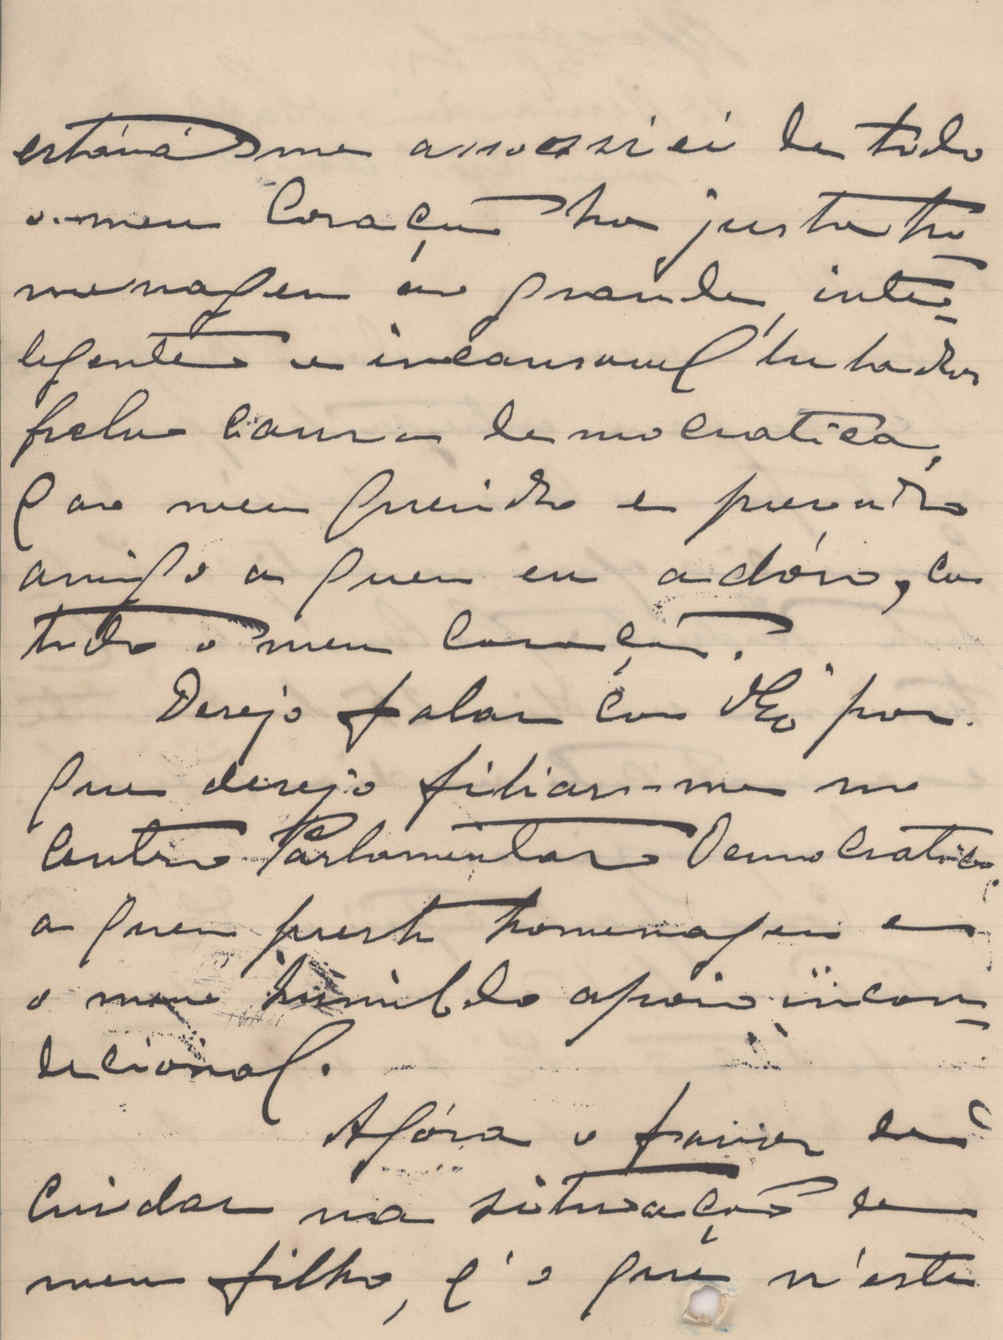 estává me associei de todo
o meu Coração ha justa ho
menagem ao grande, inte
legente e incansavel luctador
pela causa democratica,
e ao meu querido e presado
amigo a quem eu adóro, com
todo o meu coração.
Desejo falar com V. Exª por
que desejo filiar-me no
Centro Parlamentar Democratico,
a quem presto homenagem e
o meu humilde apoio incon
decional.
Agóra o favor de
Cuidar na situação de
meu filho, é o que n'este